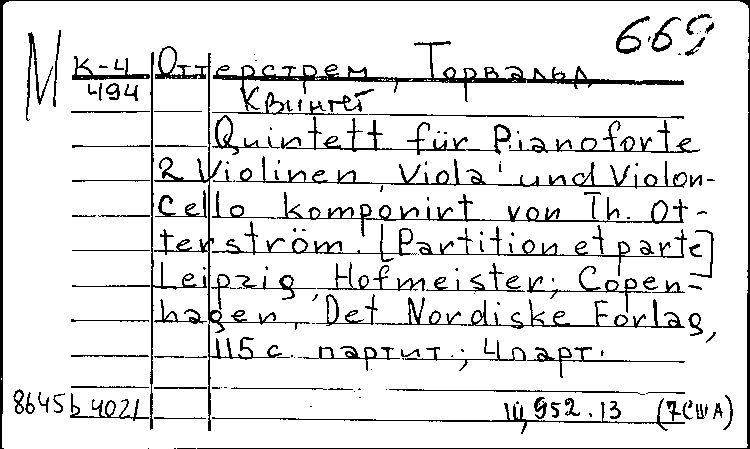 669
М К-4 Оттерстрем, Торвальд
494 Квинтет
Quintett für Pianoforte
2 Violinen, Viola und Violon-
cello komponirt von Th. Ot-
terström. [Partition et parte]
Leipzig, Hofmeister; Copen-
hagen, Det Nordiske Forlag,
115 с. партит.; 4 парт.
8645b 4021 Ш,952.13 (7США)